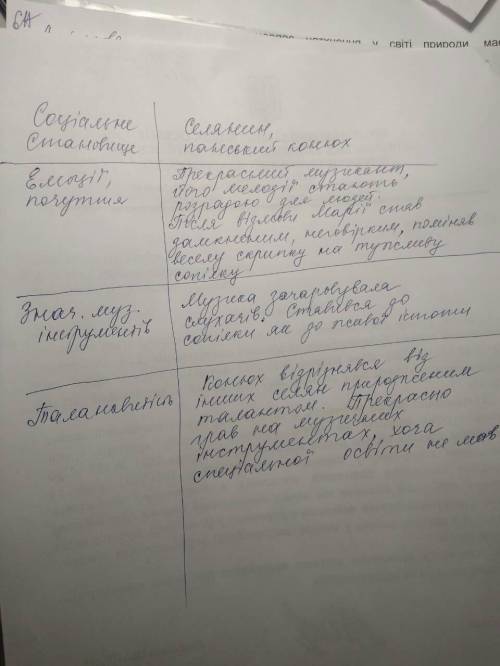 6А
у світі природи
Соціальне
становище
Селянин,
панський конюх
Емоції,
почуття
Прекрасний музикант,
його мелодії стають
розрадою для людей.
Після відмови Марії став
замкненим, неговірким, поміняв
веселу скрипку на тужливу
сопілку
Знач. муз.
інструментів
Музика зачаровувала
слухачів. Ставився до
сопілки як до живої істоти
Талановитість
Конюх відрізнявся від
інших селян природженим
талантом. Прекрасно
грав на музичних
інструментах, хоча
спеціальної освіти не мав